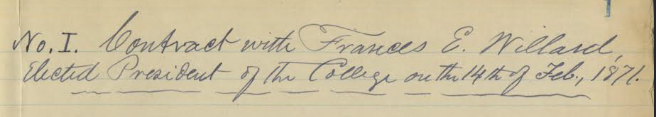 No. I. Contract with Frances E. Willard,
Elected President of the College on the 14th of Feb., 1871.